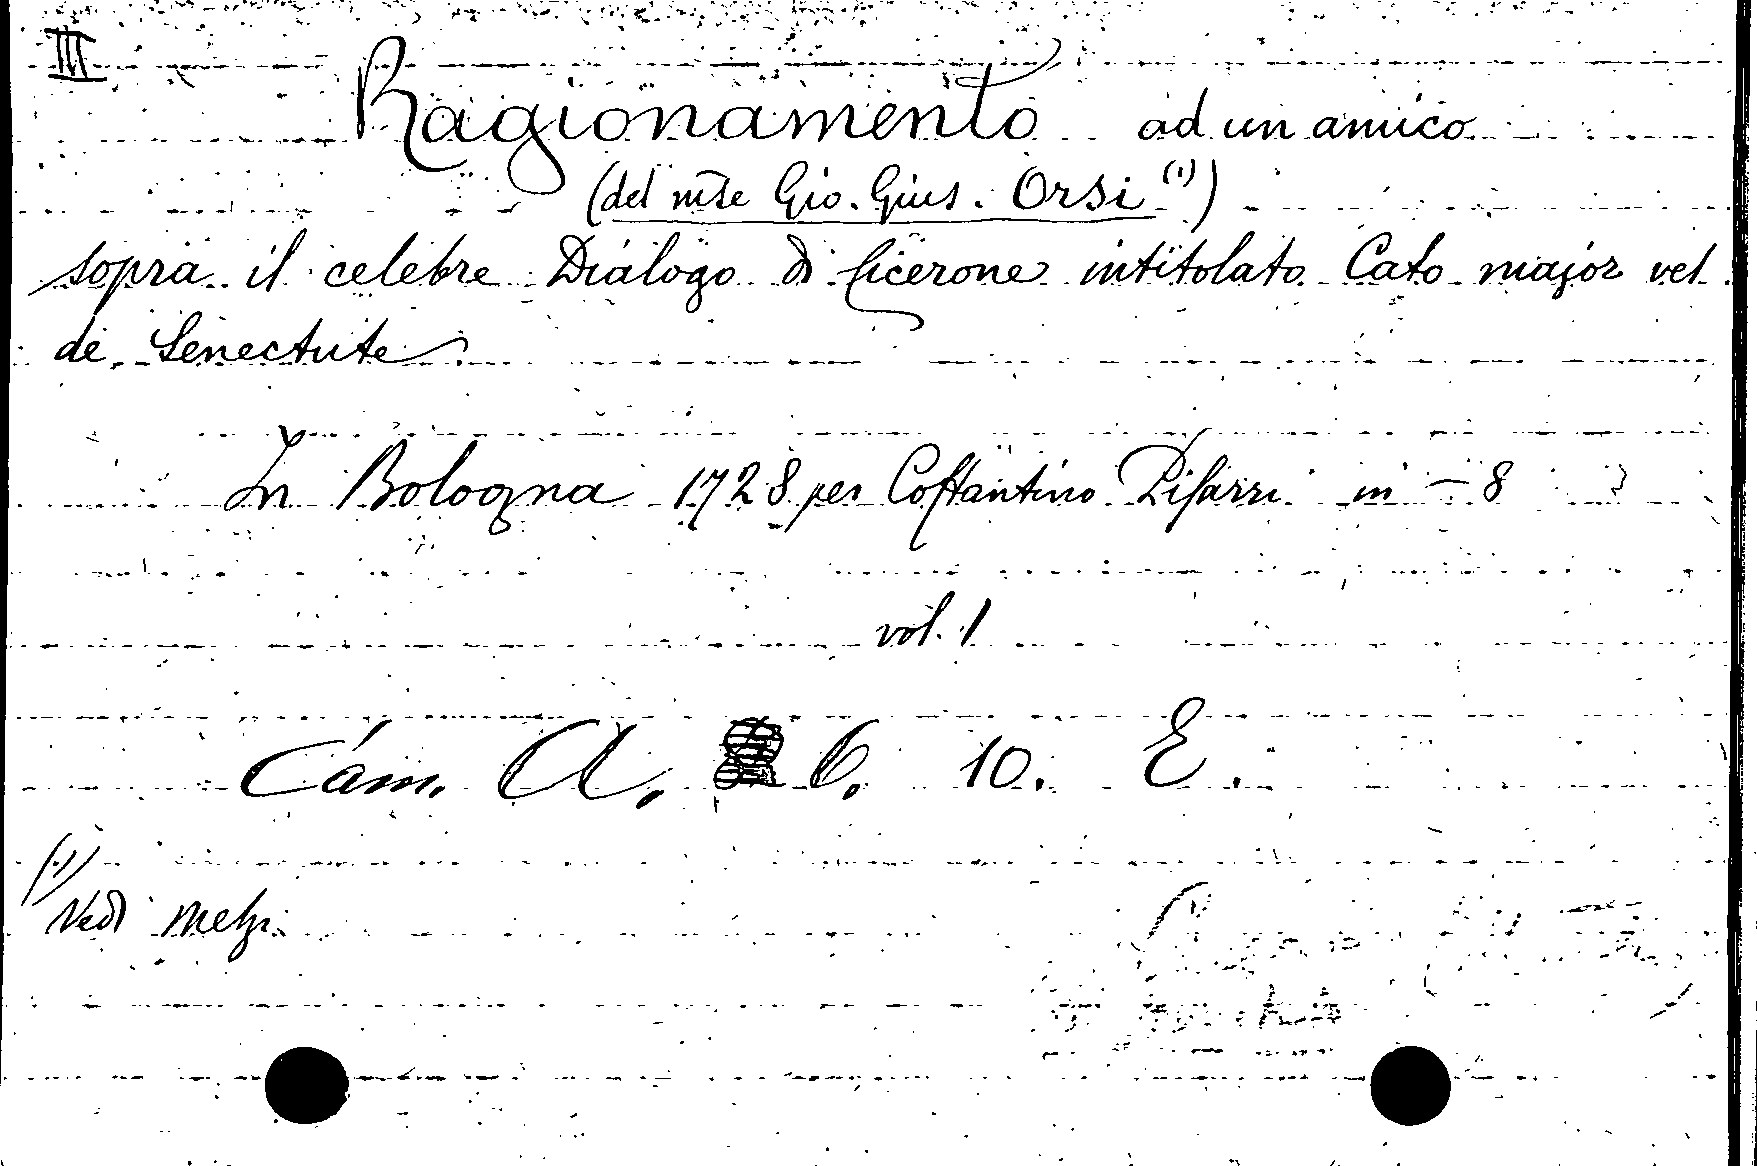 III
Ragionamento ad un amico
(del mse Gio. Gius. Orsi (1))
sopra il celebre Dialogo di Cicerone intitolato Cato major vel
de Senectute
In Bologna 1728 per Costantino Pisarri in-8
vol. 1
Cam. A. 6. 10. E.
(1)
Vedi Melzi